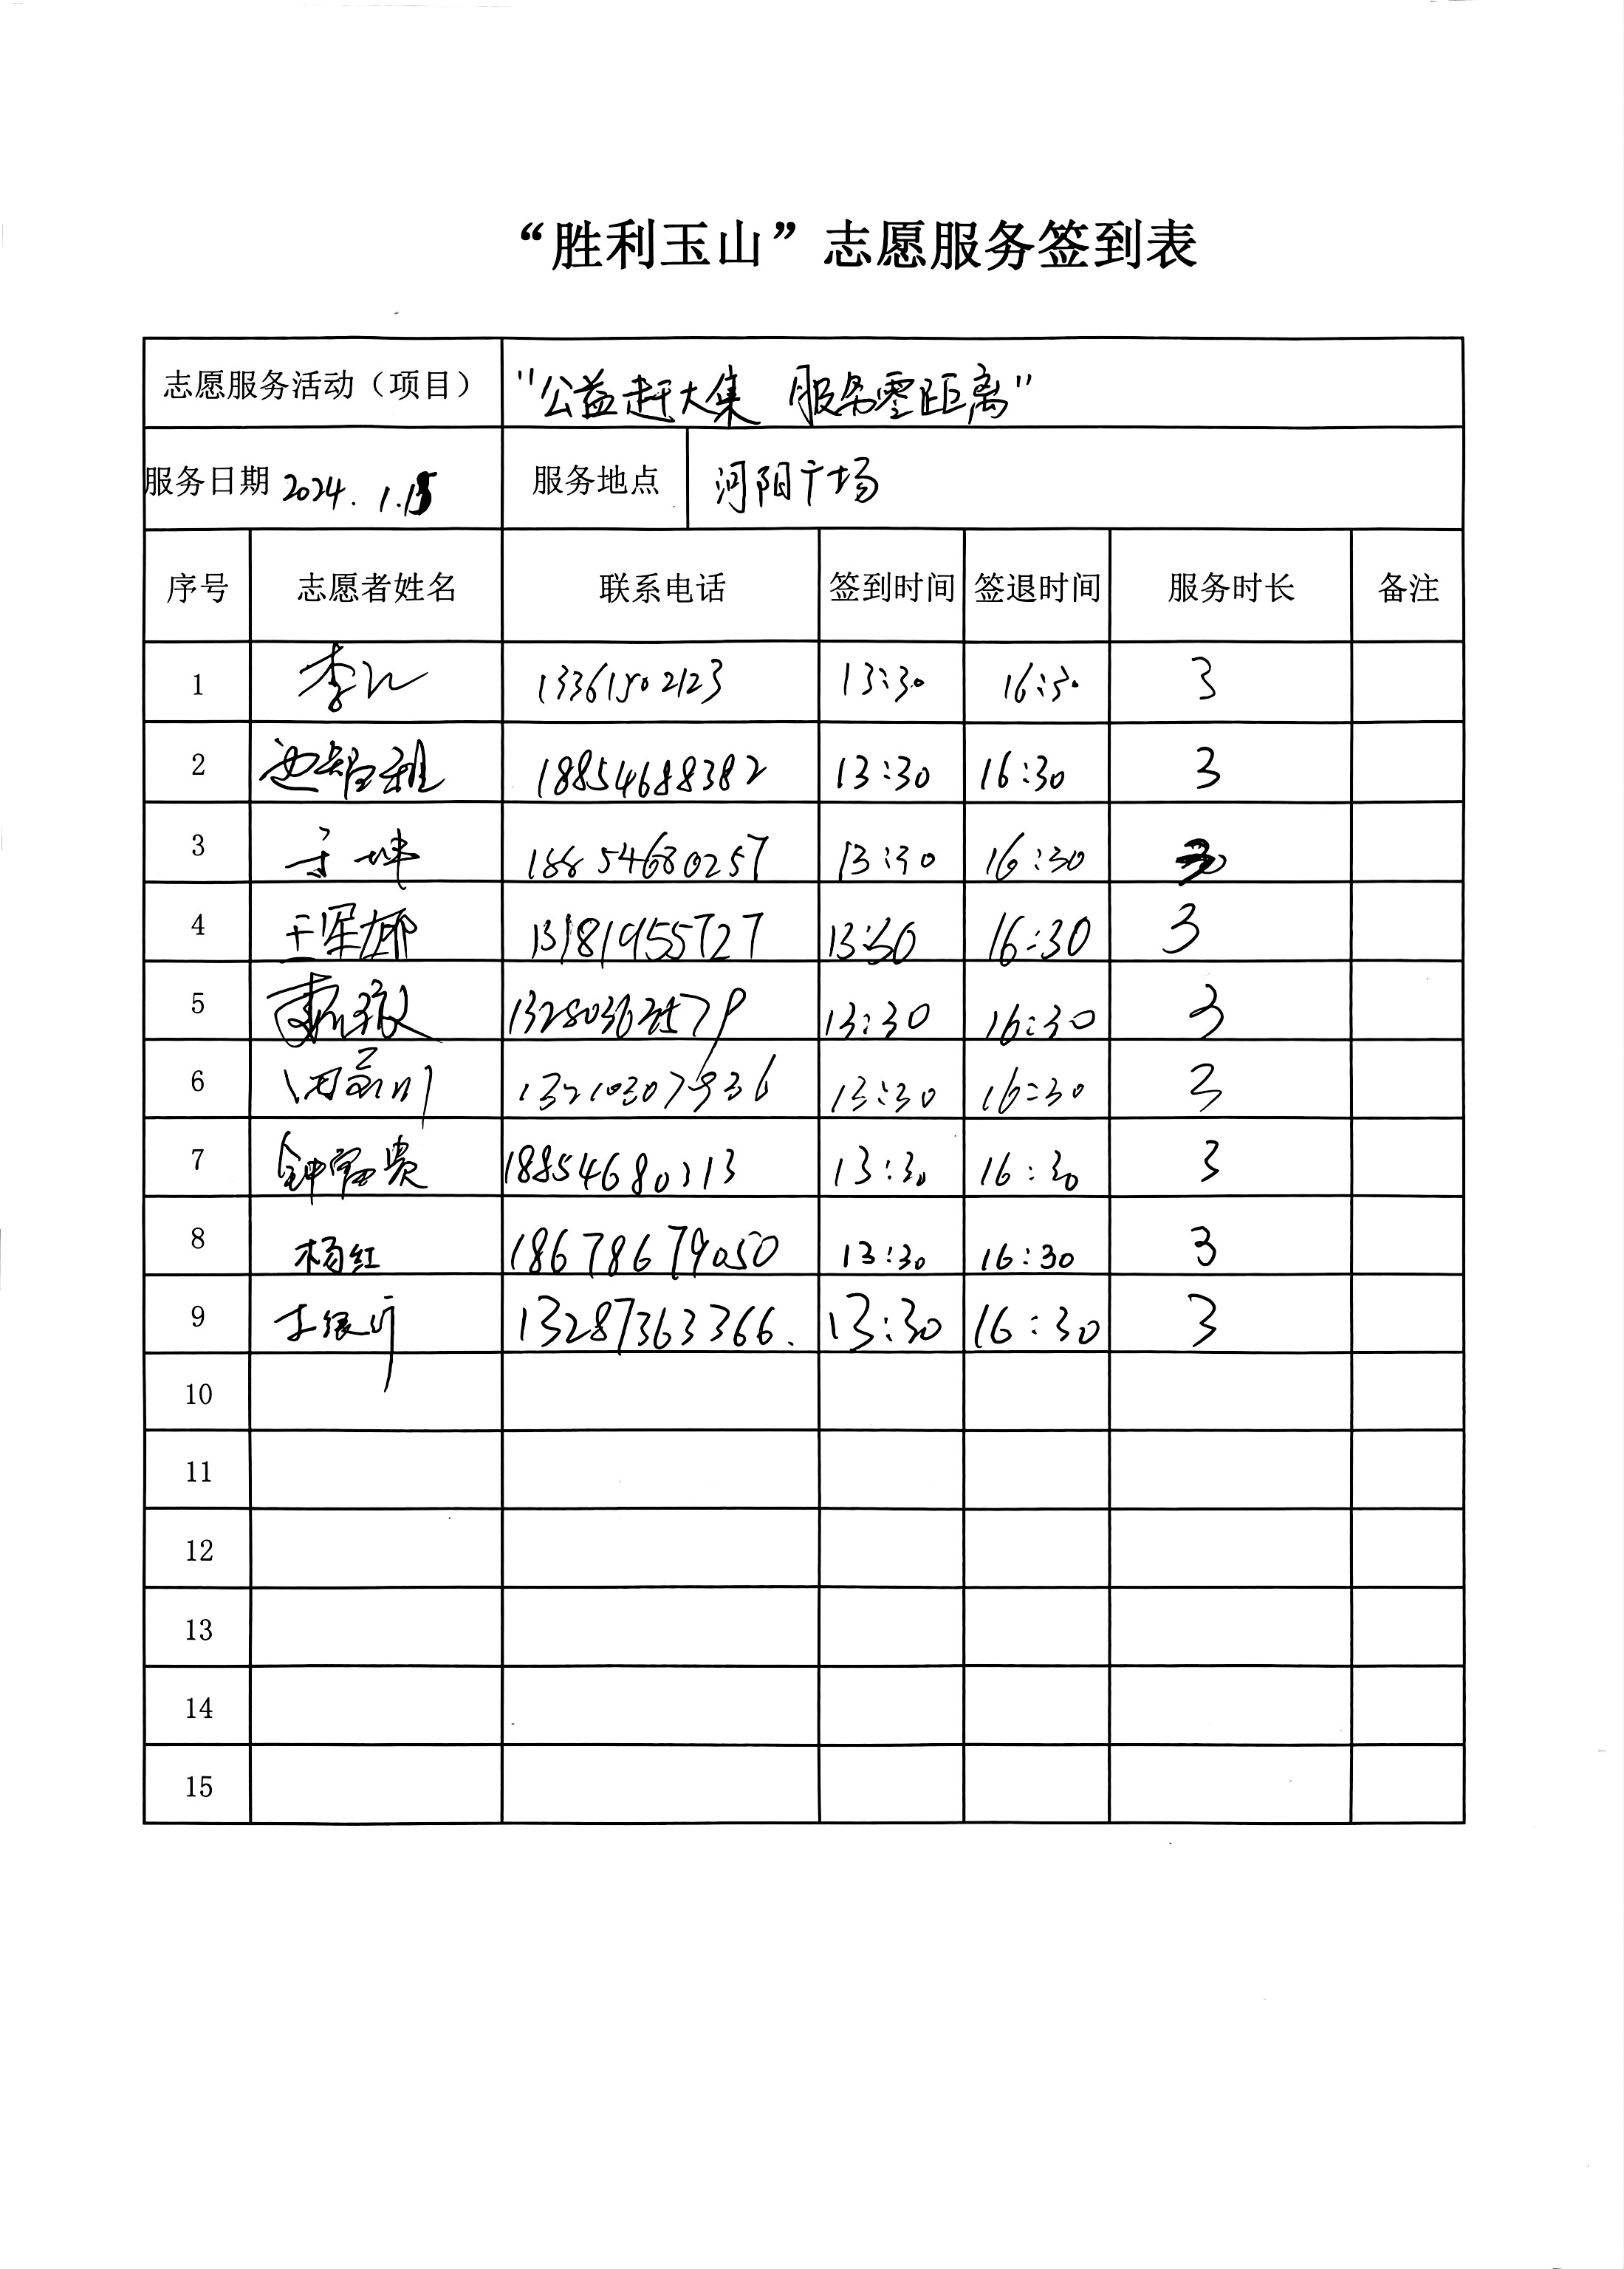 “胜利玉山”志愿服务签到表
志愿服务活动（项目） “公益赶大集 服务零距离”
服务日期 2024.1.15 服务地点 河阳广场
序号 志愿者姓名 联系电话 签到时间 签退时间 服务时长 备注
1 李 13361502123 13:30 16:30 3
2 18854688382 13:30 16:30 3
3 于坤 18854680257 13:30 16:30 3
4 王军娜 13181955727 13:30 16:30 3
5 13:30 16:30 3
6 13:30 16:30 3
7 钟富贵 18854680313 13:30 16:30 3
8 杨红 18678679050 13:30 16:30 3
9 13287363366. 13:30 16:30 3
10
11
12
13
14
15